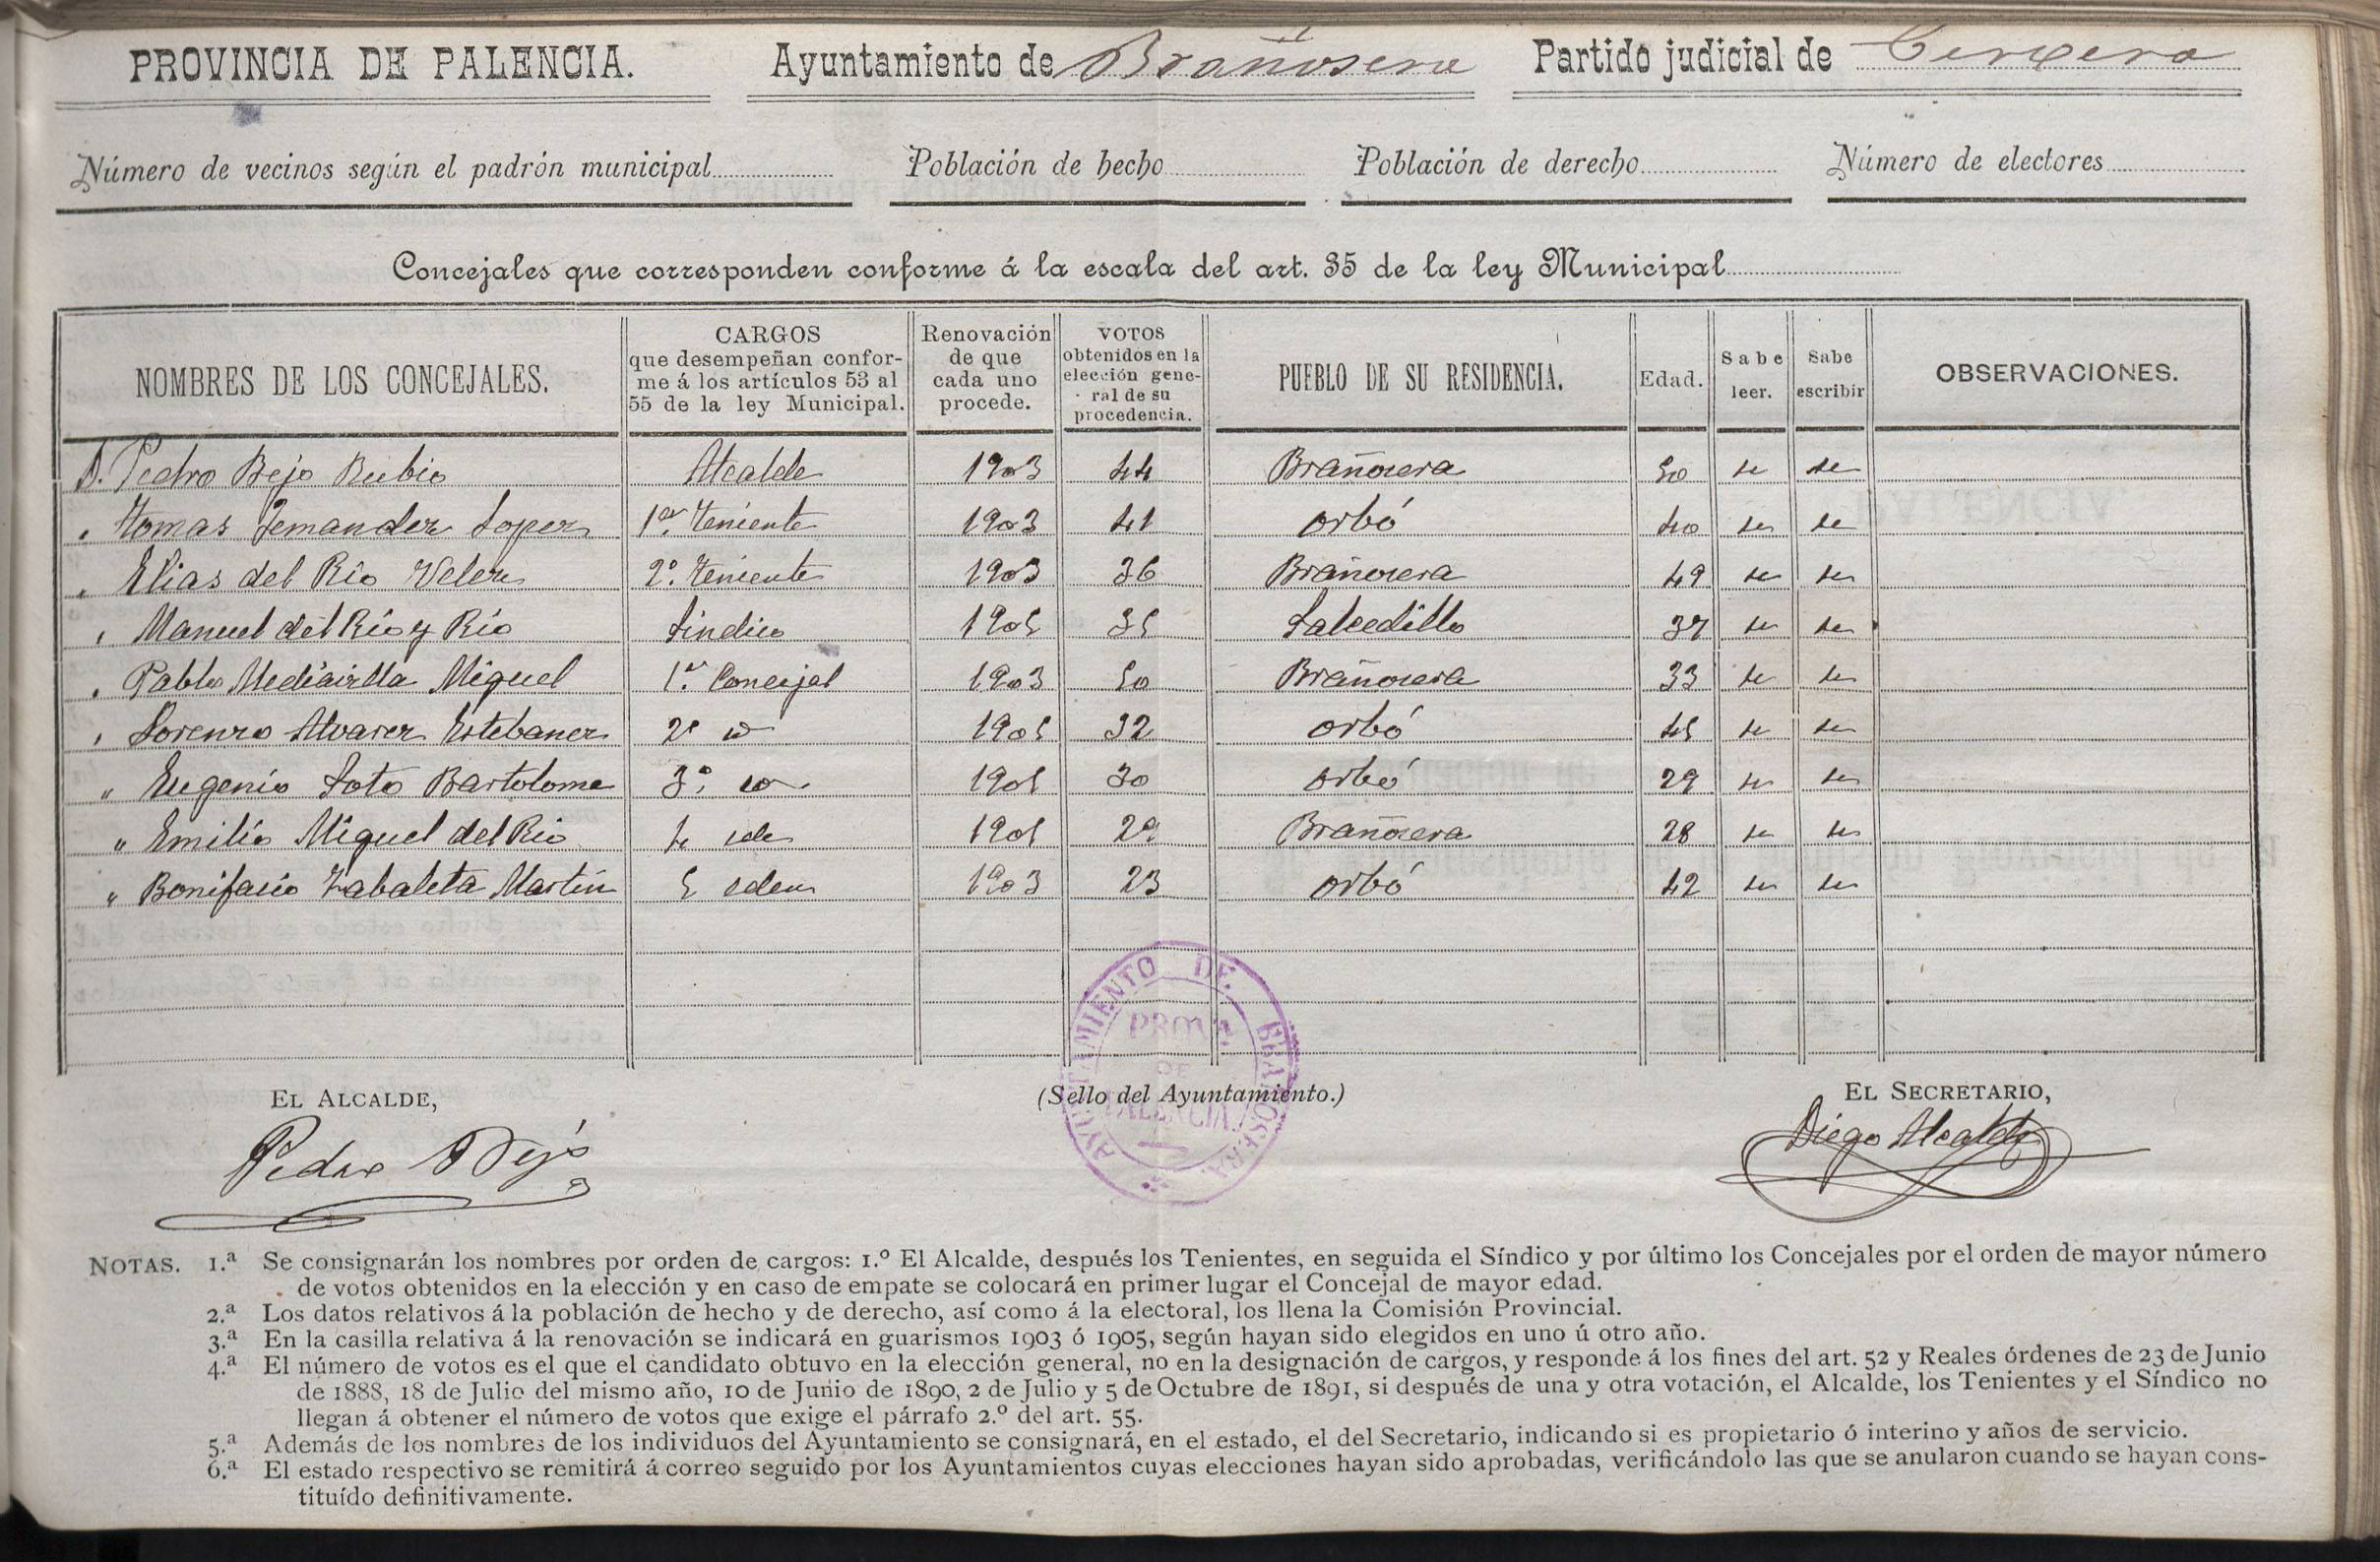 PROVINCIA DE PALENCIA. Ayuntamiento de Brañosera Partido judicial de Cervera
Número de vecinos según el padrón municipal Población de hecho Población de derecho Número de electores
Concejales que corresponden conforme á la escala del art. 35 de la ley Municipal
NOMBRES DE LOS CONCEJALES.
CARGOS
que desempeñan confor-
me á los artículos 53 al
55 de la ley Municipal.
Renovación
de que
cada uno
procede.
VOTOS
obtenidos en la
elección gene-
ral de su
procedencia.
PUEBLO DE SU RESIDENCIA.
Edad.
Sabe
leer.
Sabe
escribir
OBSERVACIONES.
D. Pedro Bejo Rubio Alcalde 1903 44 Brañosera 50 se se
" Tomas Fernandez Lopez 1er Teniente 1903 41 Orbó 40 se se
" Elias del Rio Velez 2º. Teniente 1903 36 Brañosera 49 se se
" Manuel del Rio y Rio Sindico 1905 35 Salcedillo 37 se se
" Pablo Mediavilla Miguel 1er Concejal 1903 50 Brañosera 33 se se
" Lorenzo Alvarez Estebanez 2º id 1905 32 Orbó 45 se se
" Eugenio Soto Bartolome 3º. id. 1905 30 Orbó 29 se se
" Emilio Miguel del Rio 4 idem 1905 29 Brañosera 28 se se
" Bonifacio Zabaleta Martin 5 idem 1903 23 Orbó 42 se se
AYUNTAMIENTO DE BRAÑOSERA
PROVA.
DE
PALENCIA
EL ALCALDE, (Sello del Ayuntamiento.) EL SECRETARIO,
Pedro Bejo Diego Alcalde
NOTAS. 1.ª Se consignarán los nombres por orden de cargos: 1.º El Alcalde, después los Tenientes, en seguida el Síndico y por último los Concejales por el orden de mayor número
de votos obtenidos en la elección y en caso de empate se colocará en primer lugar el Concejal de mayor edad.
2.ª Los datos relativos á la población de hecho y de derecho, así como á la electoral, los llena la Comisión Provincial.
3.ª En la casilla relativa á la renovación se indicará en guarismos 1903 ó 1905, según hayan sido elegidos en uno ú otro año.
4.ª El número de votos es el que el candidato obtuvo en la elección general, no en la designación de cargos, y responde á los fines del art. 52 y Reales órdenes de 23 de Junio
de 1888, 18 de Julio del mismo año, 10 de Junio de 1890, 2 de Julio y 5 de Octubre de 1891, si después de una y otra votación, el Alcalde, los Tenientes y el Síndico no
llegan á obtener el número de votos que exige el párrafo 2.º del art. 55.
5.ª Además de los nombres de los individuos del Ayuntamiento se consignará, en el estado, el del Secretario, indicando si es propietario ó interino y años de servicio.
6.ª El estado respectivo se remitirá á correo seguido por los Ayuntamientos cuyas elecciones hayan sido aprobadas, verificándolo las que se anularon cuando se hayan cons-
tituído definitivamente.